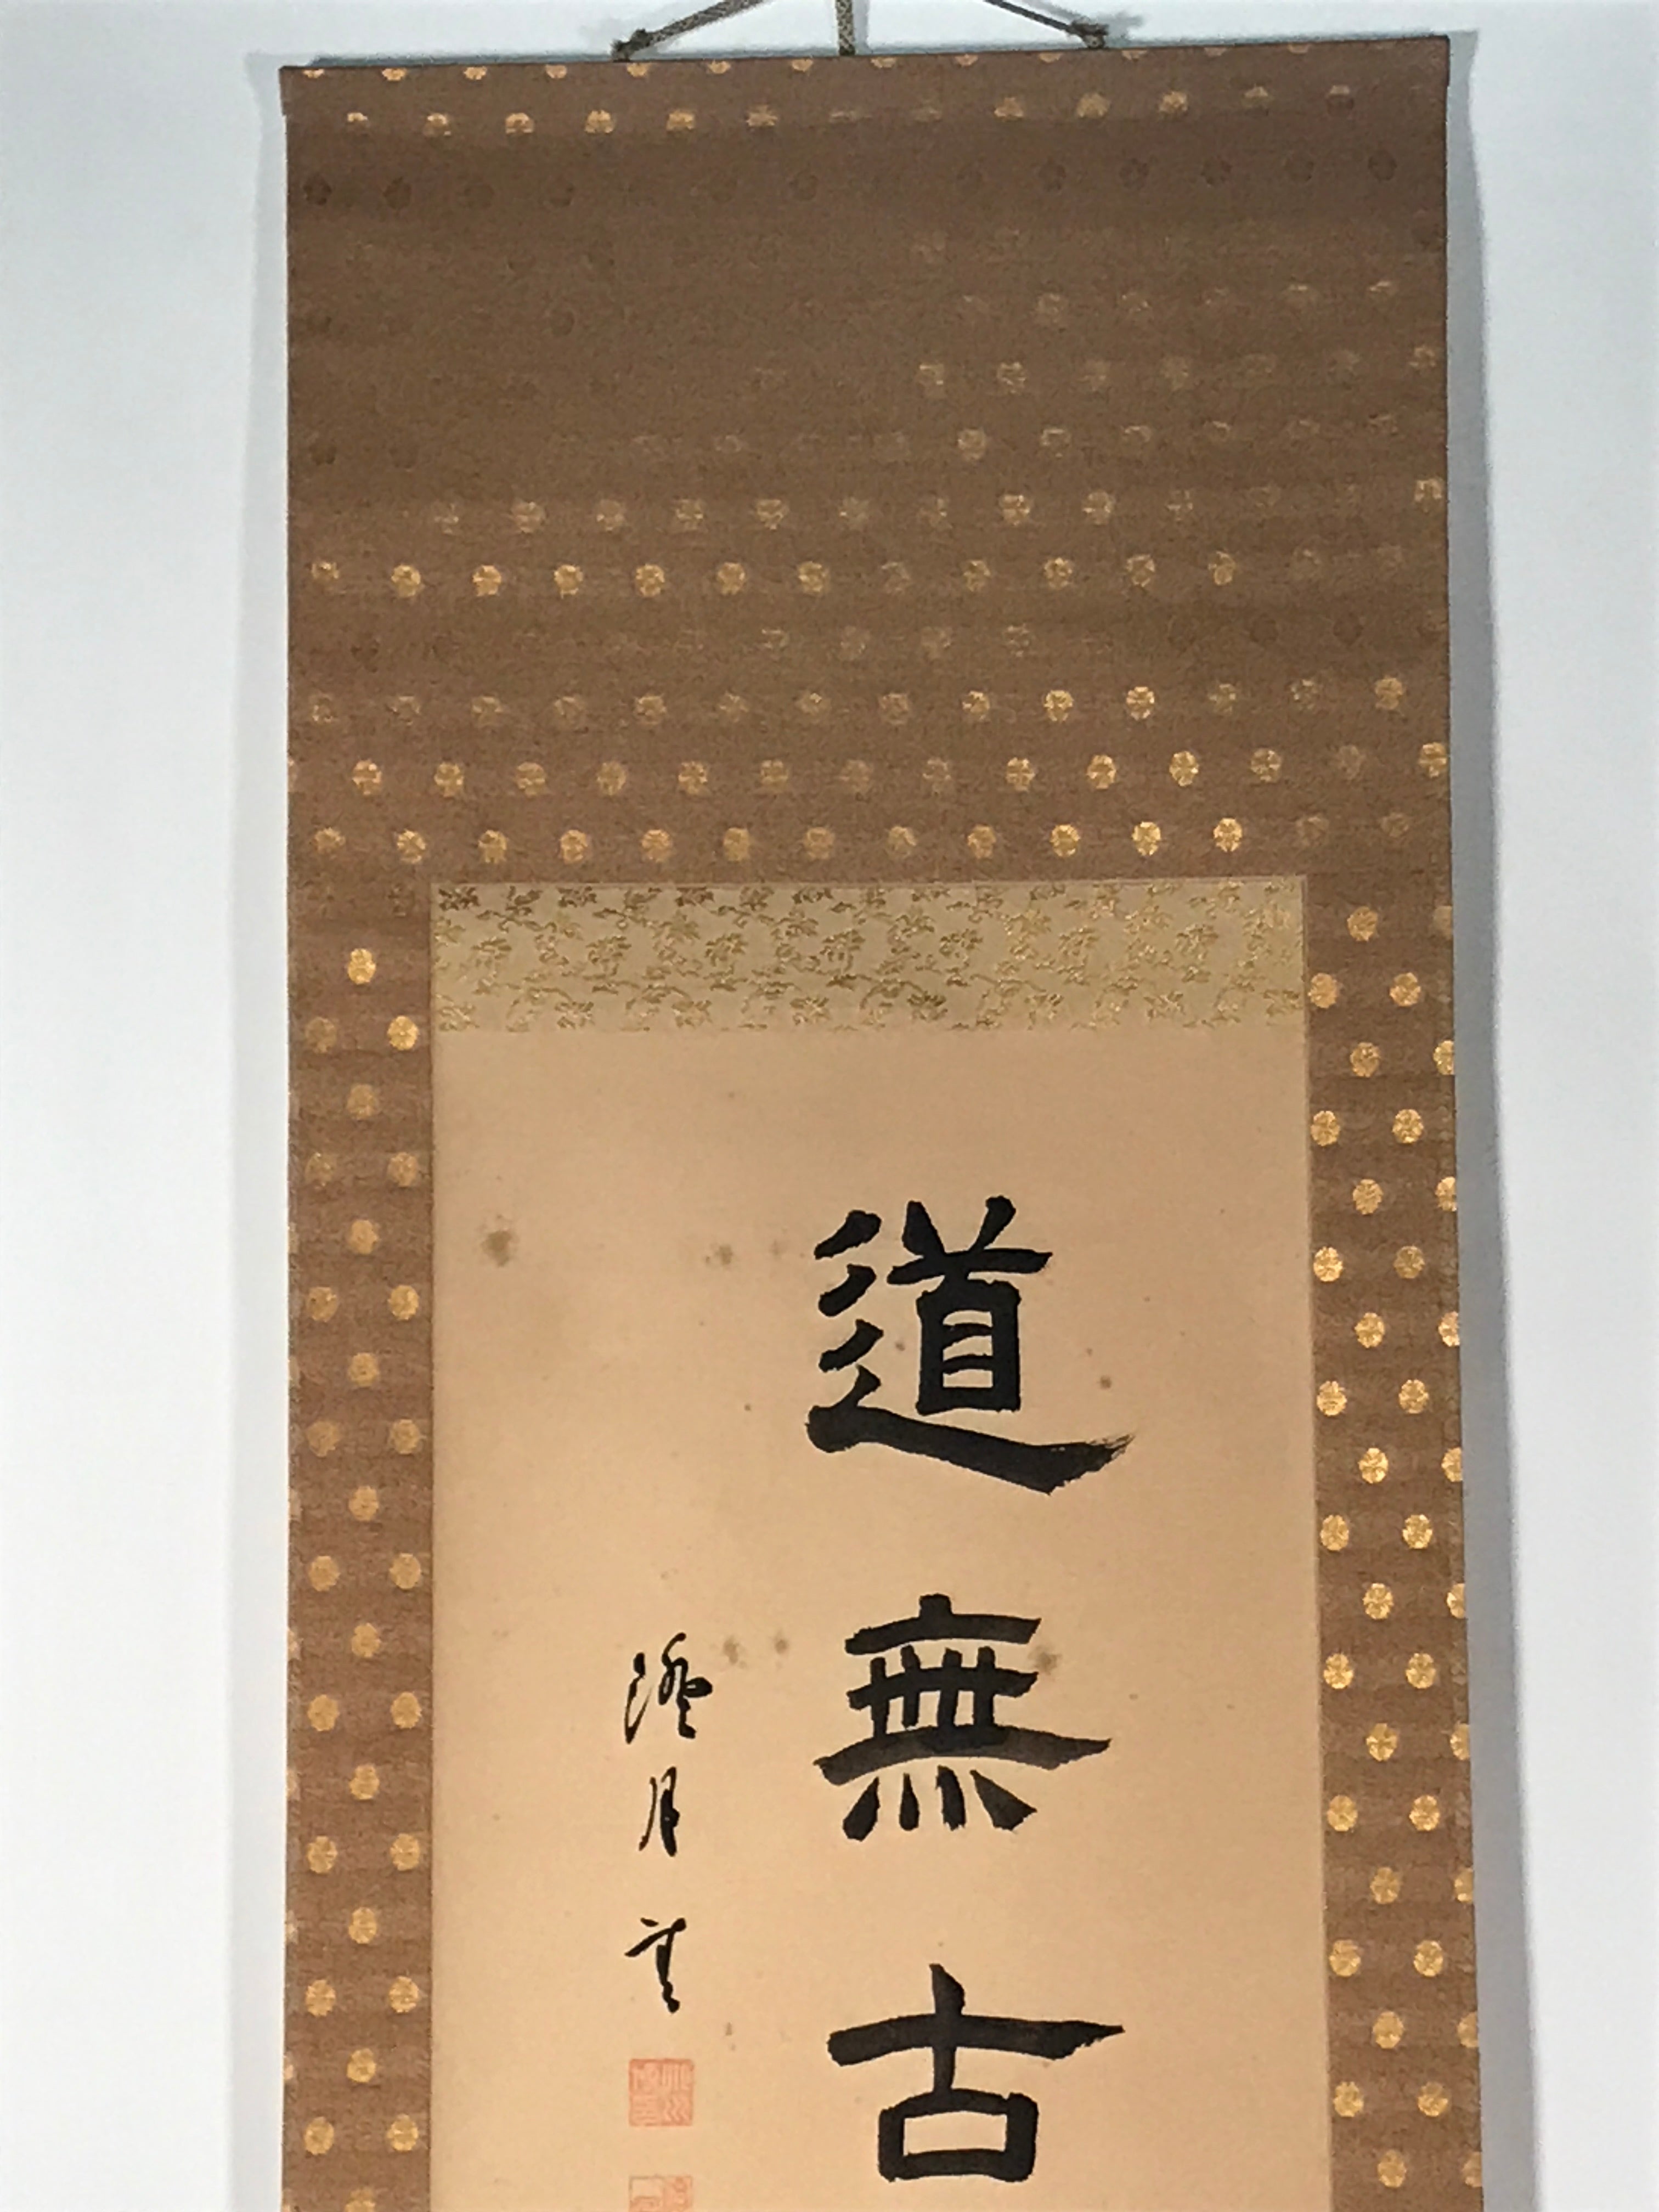 道無古
澄月書